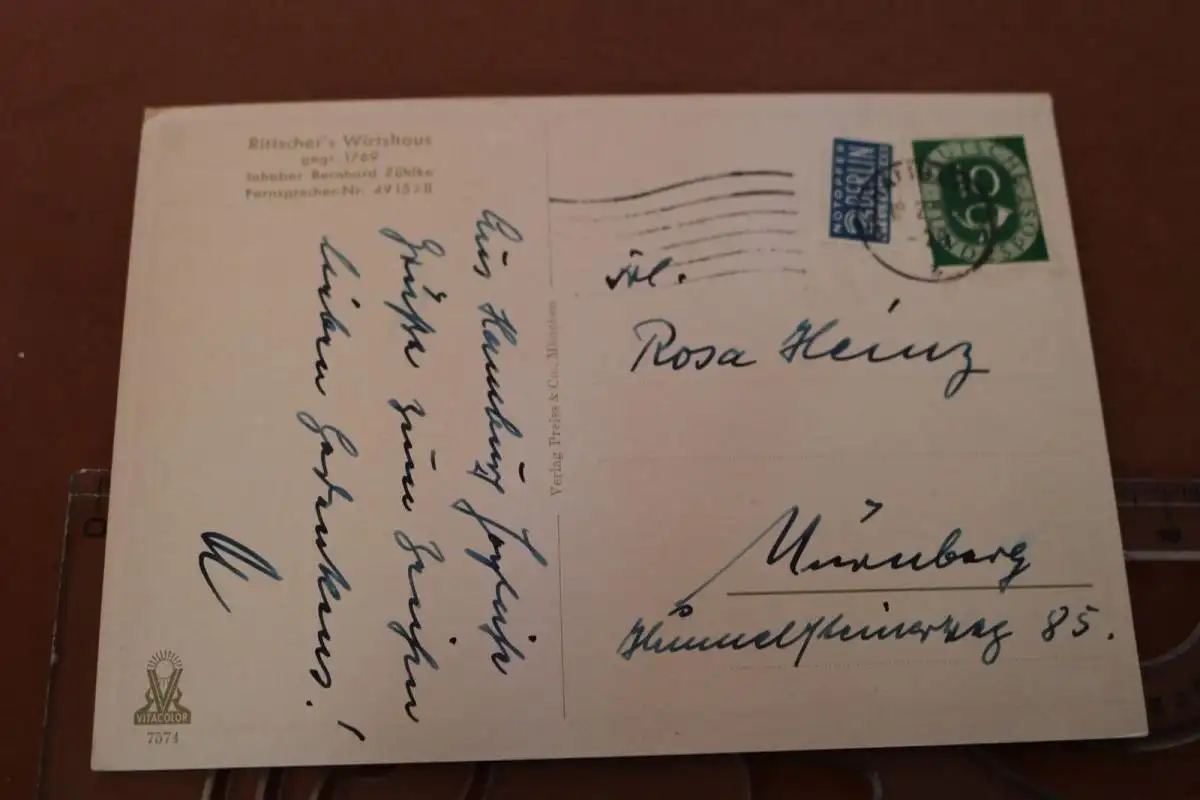 Rittscher's Wirtshaus
gegr. 1769
Inhaber Bernhard Zühlke
Fernsprecher-Nr. 491528
Aus Hamburg herzliche
Grüße zum Zeichen
lieben Gedenkens!
Verlag Preiss & Co., München
VITACOLOR
7574
NOTOPFER
2 BERLIN
STEUERMARKE
DEUTSCHE
BUNDESPOST
10
Frl.
Rosa Heinz
Nürnberg
Hummelsteinerweg 85.